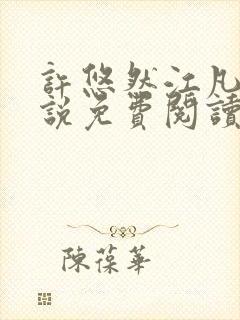 許悠然江凡
說免費閱讀
陳葆華